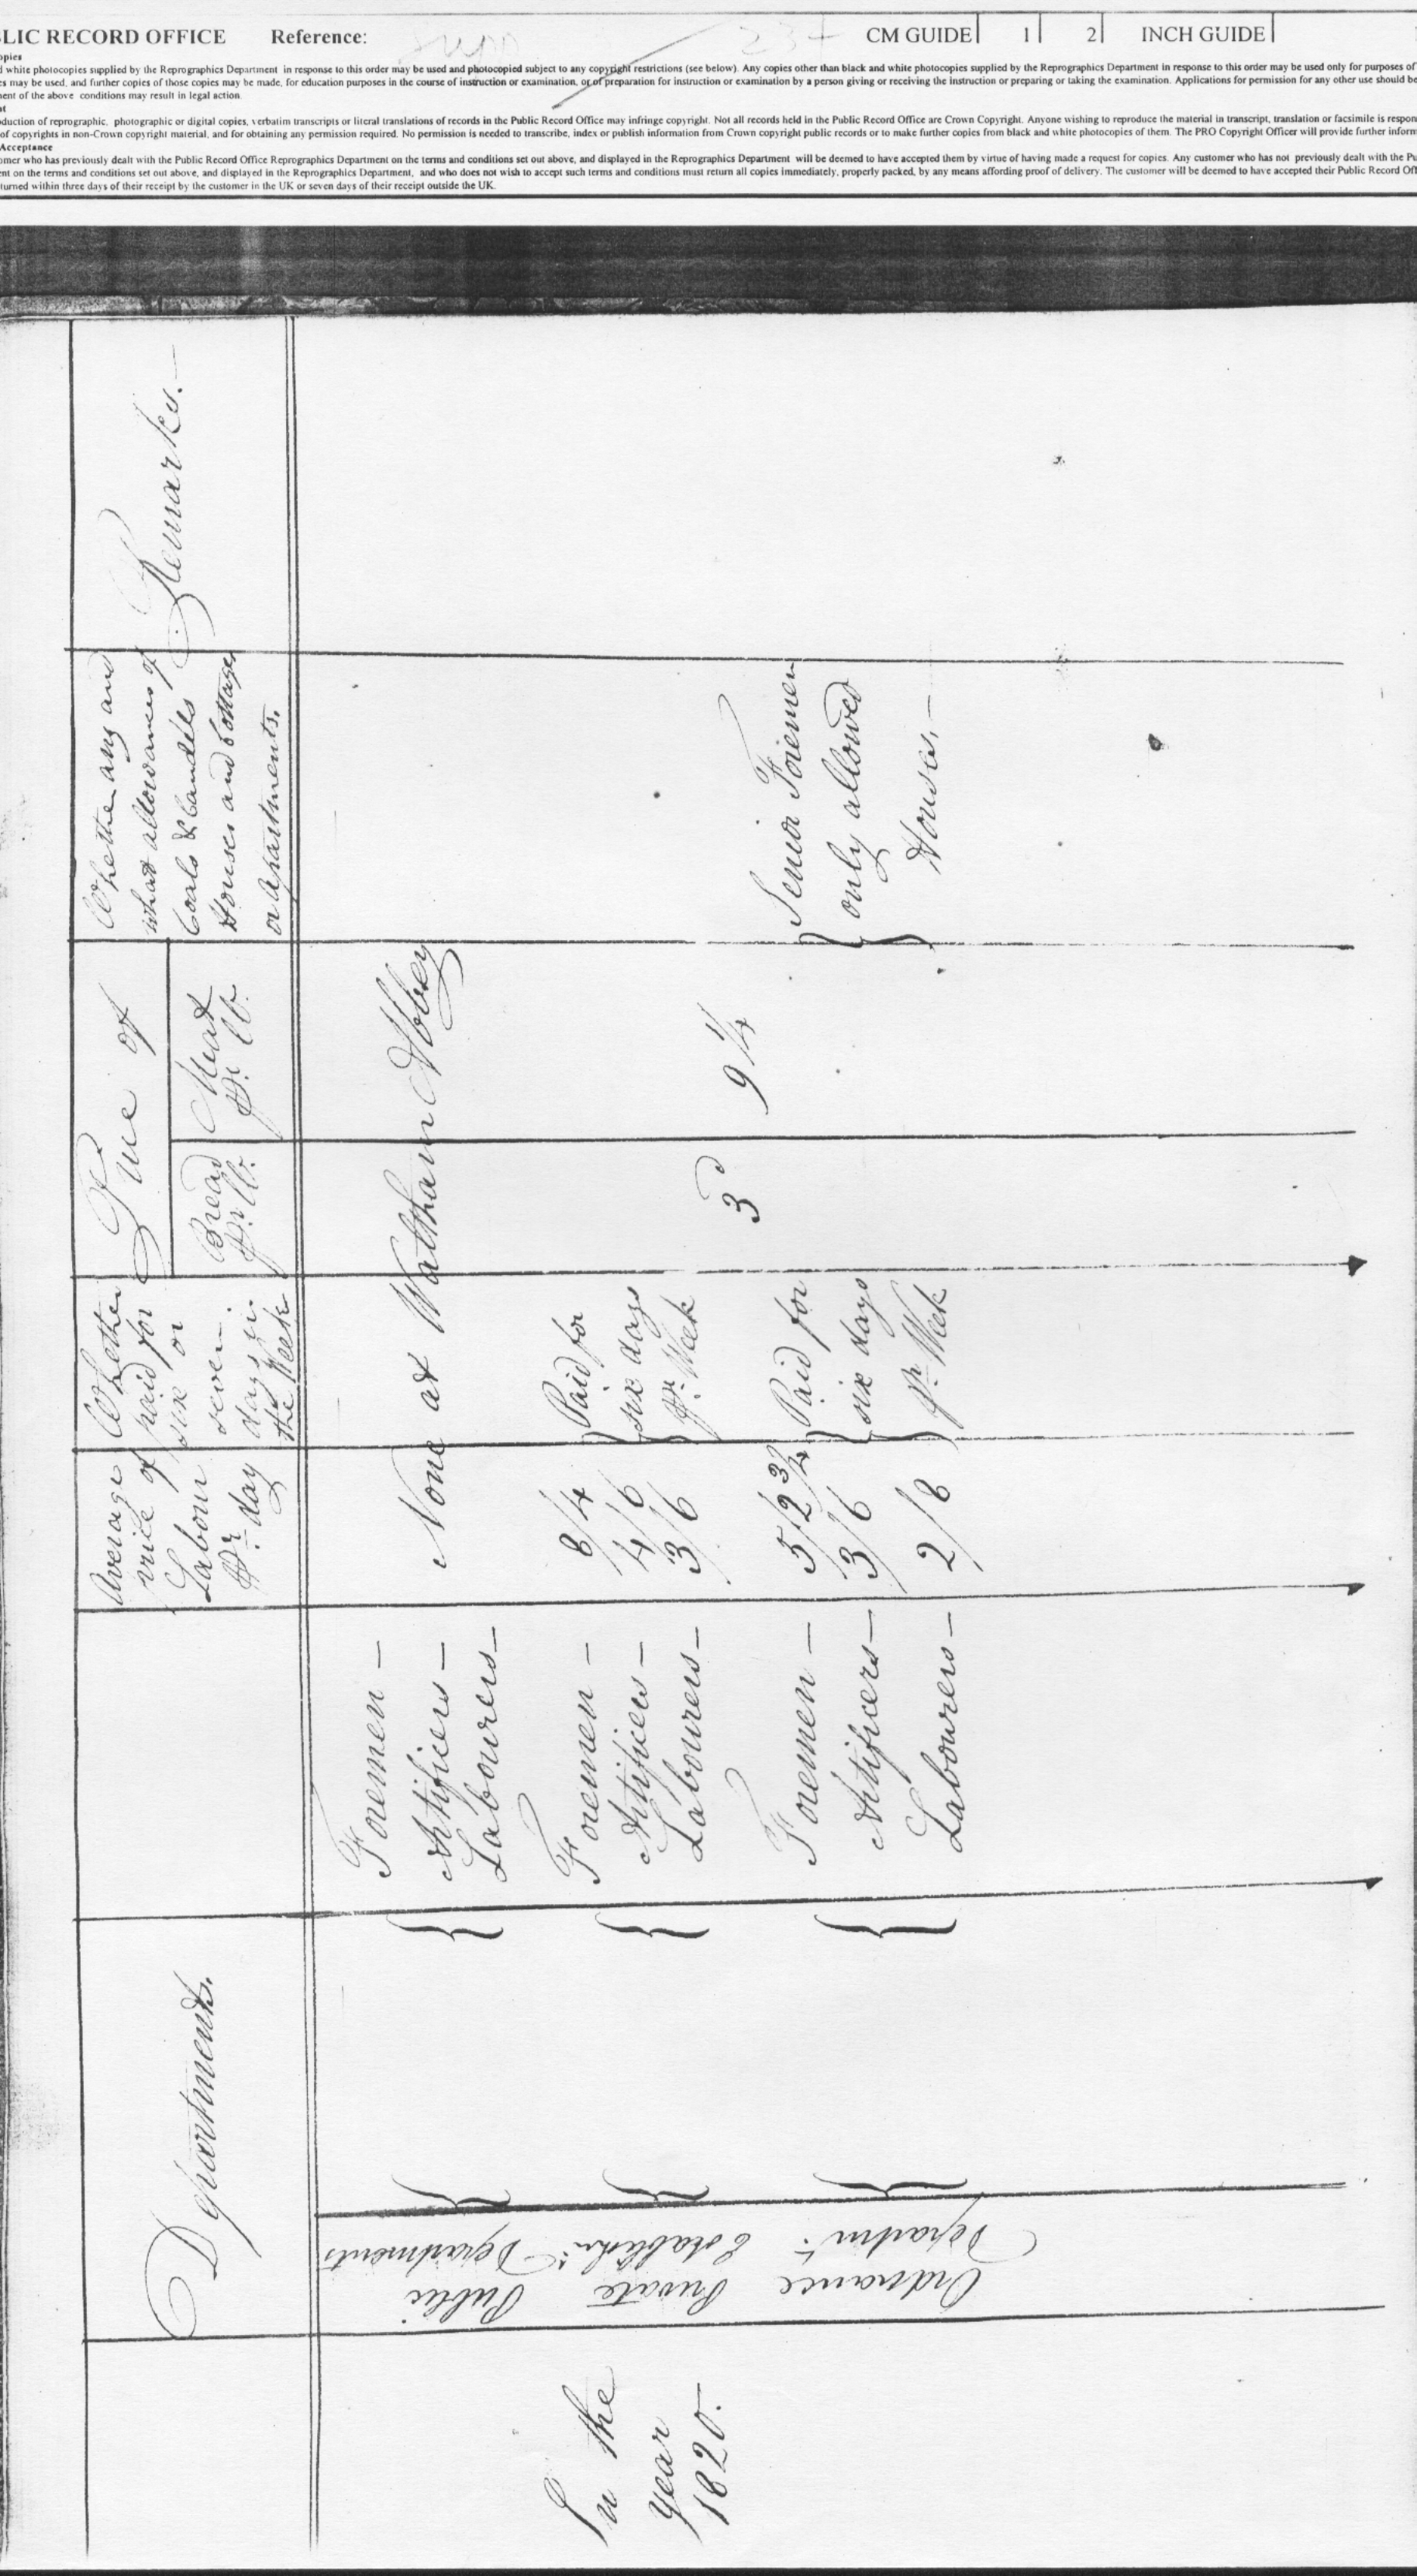 LIC RECORD OFFICE Reference: Supp 237 CM GUIDE 1 2 INCH GUIDE
opies
white photocopies supplied by the Reprographics Department in response to this order may be used and photocopied subject to any copyright restrictions (see below). Any copies other than black and white photocopies supplied by the Reprographics Department in response to this order may be used only for purposes of
s may be used, and further copies of those copies may be made, for education purposes in the course of instruction or examination, or of preparation for instruction or examination by a person giving or receiving the instruction or preparing or taking the examination. Applications for permission for any other use should be
ent of the above conditions may result in legal action.
duction of reprographic, photographic or digital copies, verbatim transcripts or literal translations of records in the Public Record Office may infringe copyright. Not all records held in the Public Record Office are Crown Copyright. Anyone wishing to reproduce the material in transcript, translation or facsimile is respon
of copyrights in non-Crown copyright material, and for obtaining any permission required. No permission is needed to transcribe, index or publish information from Crown copyright public records or to make further copies from black and white photocopies of them. The PRO Copyright Officer will provide further inform
Acceptance
omer who has previously dealt with the Public Record Office Reprographics Department on the terms and conditions set out above, and displayed in the Reprographics Department will be deemed to have accepted them by virtue of having made a request for copies. Any customer who has not previously dealt with the Pu
nt on the terms and conditions set out above, and displayed in the Reprographics Department, and who does not wish to accept such terms and conditions must return all copies immediately, properly packed, by any means affording proof of delivery. The customer will be deemed to have accepted their Public Record Off
turned within three days of their receipt by the customer in the UK or seven days of their receipt outside the UK.
Departments.
Average
price of
Labour
pr. day
Whether
paid for
six or
seven
days in
the Week
Price of
Bread
pr. lb.
Meat
pr. lb.
Whether any and
what allowances of
Coals & Candles
Houses and Cottages
or Apartments.
Remarks.—
In the
year
1820.
Public
Departments
Foremen —
Artificers —
Labourers —
None at Waltham Abbey
Private
Establishmt.
Foremen — 8/4
Artificers — 4/6
Labourers — 3/6
Paid for
six days
pr. Week
3d
9 1/4
Ordnance
Departmt.
Foremen — 5/2 3/4
Artificers — 3/6
Labourers — 2/8
Paid for
six days
pr. Week
Senior Foremen
only allowed
Houses.—